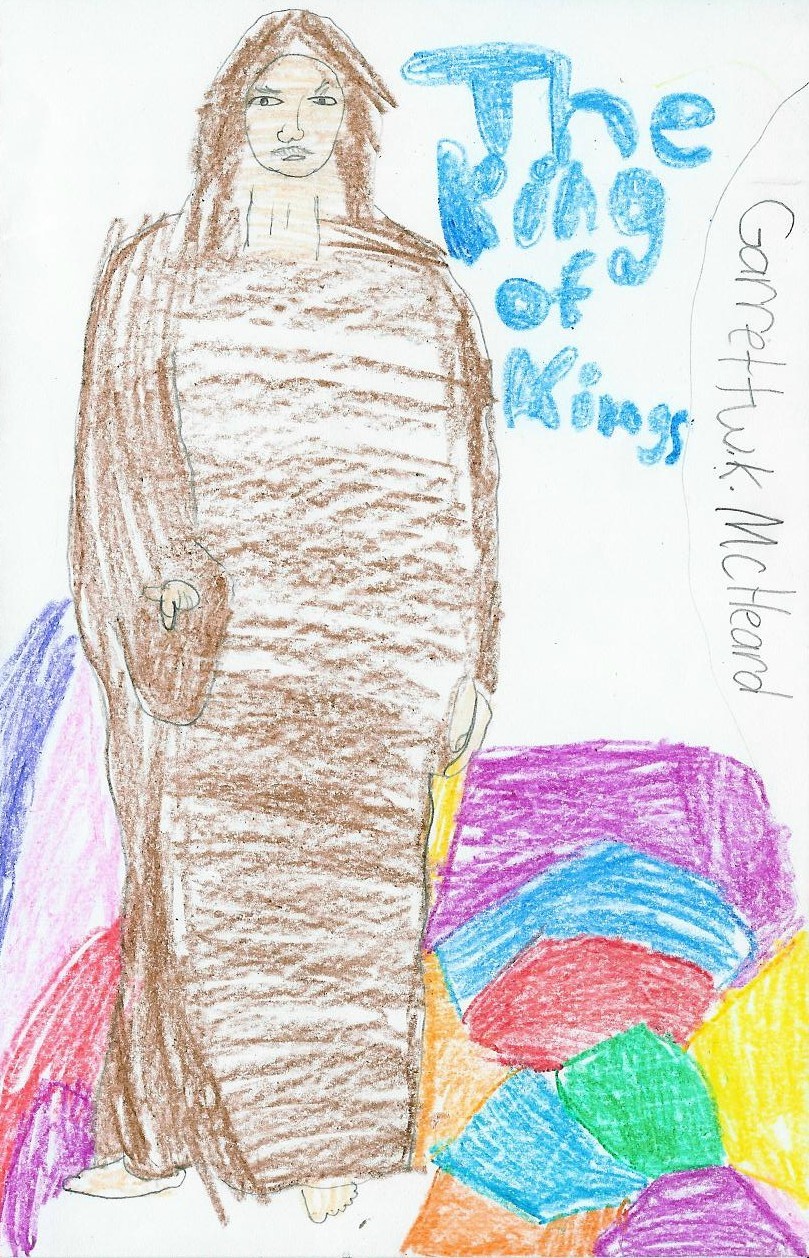 The
King
of
Kings
Garrett W.K. McHeard